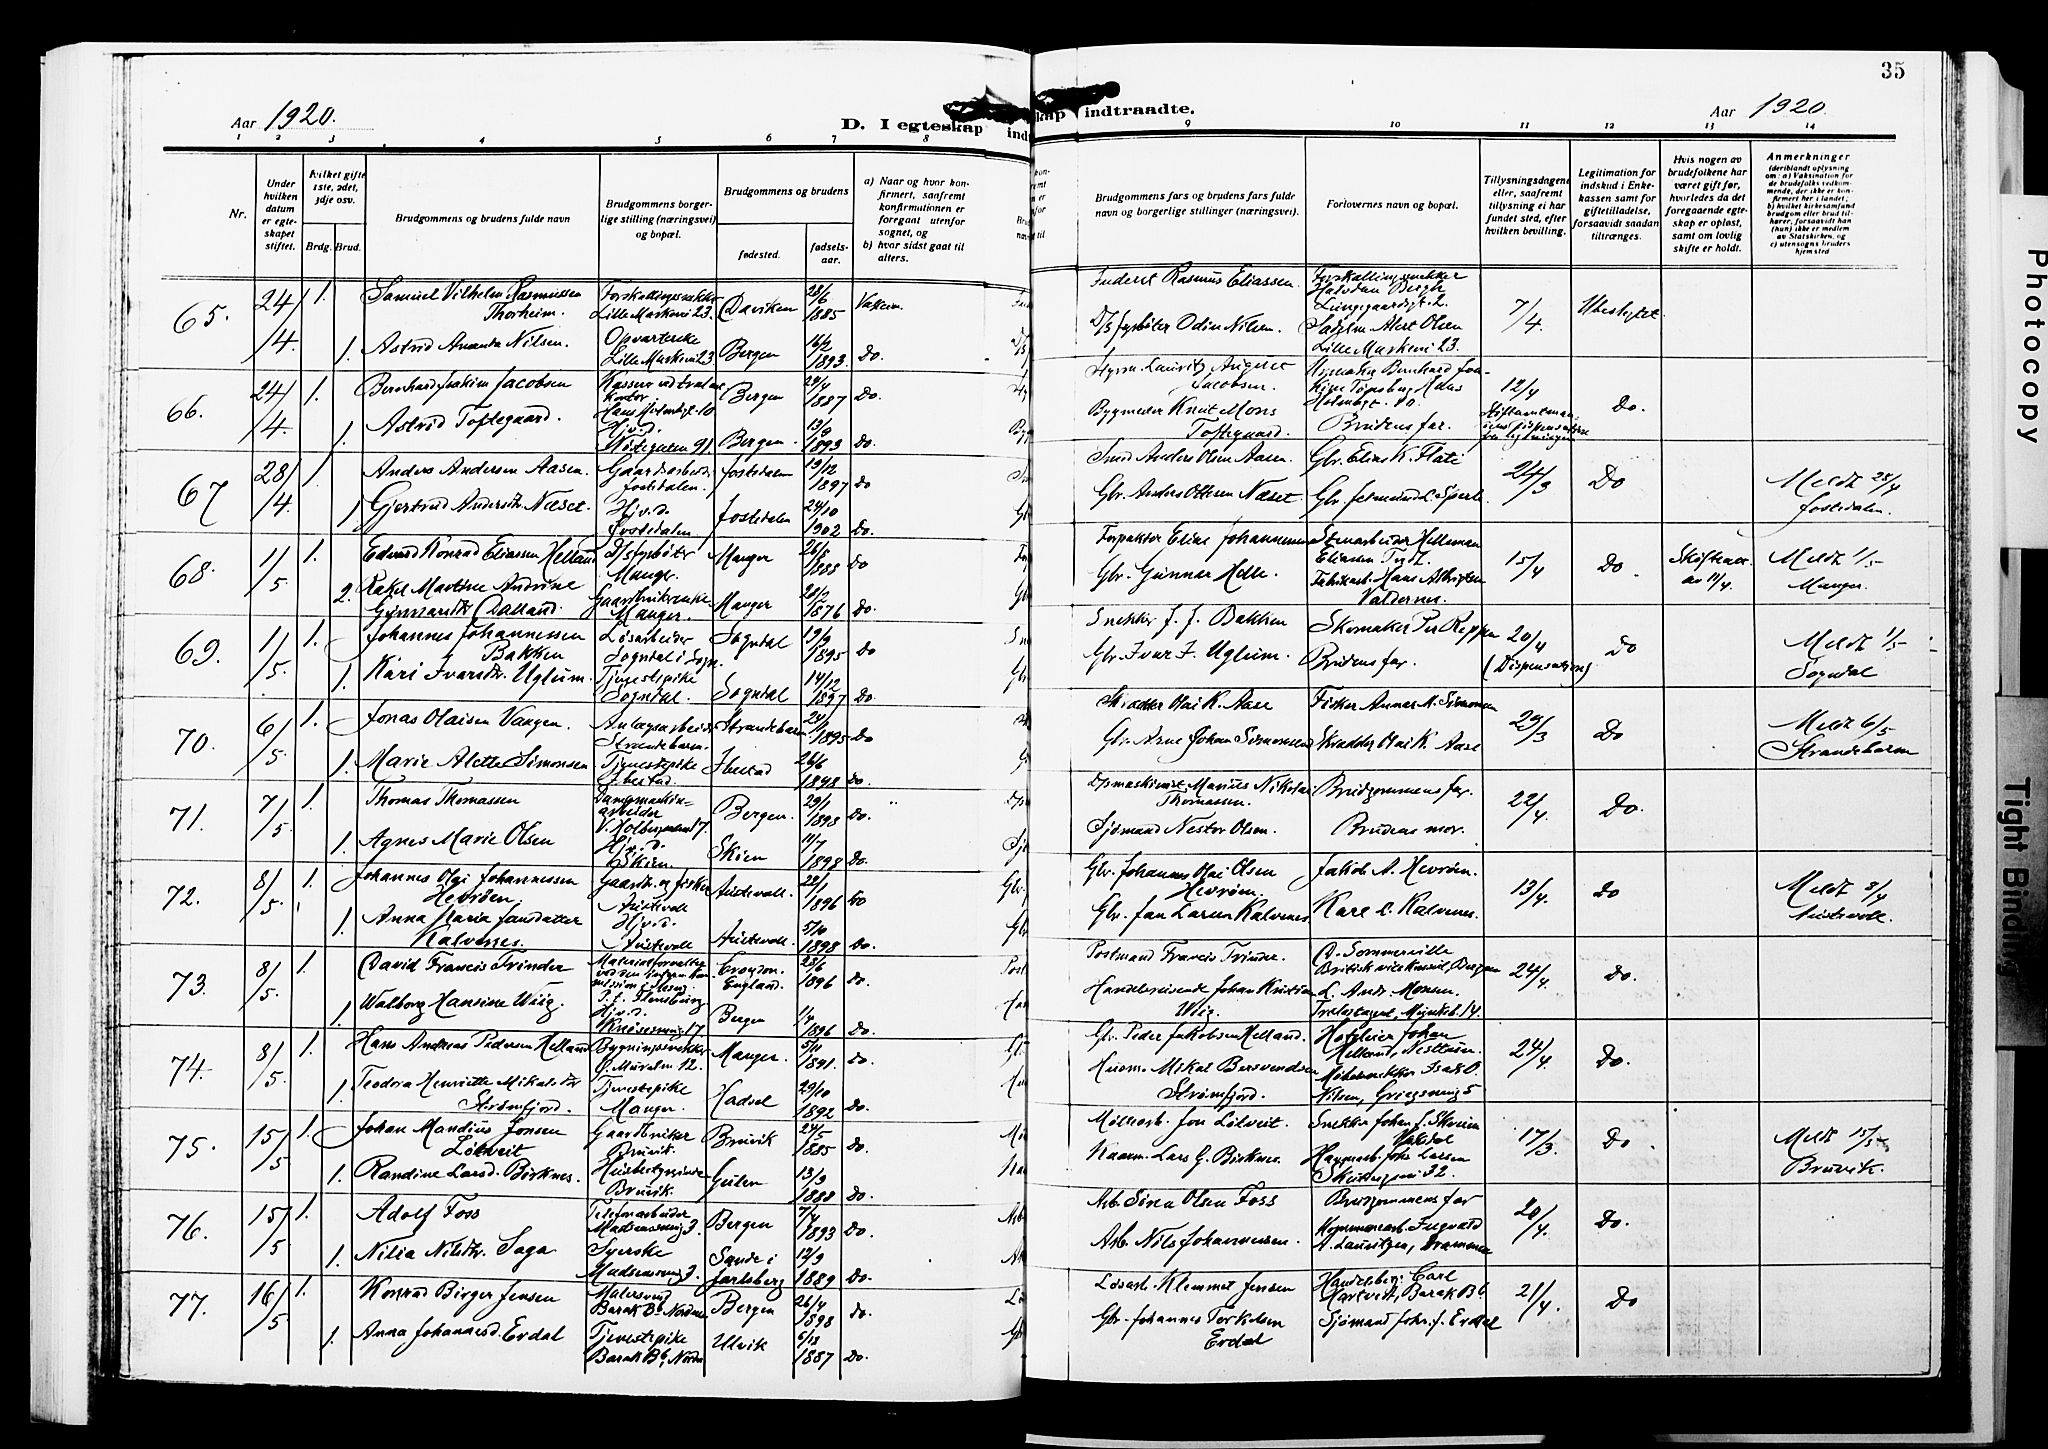 35
Aar 1920.
D. I egteskap indtraadte.
Aar 1920.
1 2 3 4 5 6 7 8 9 10 11 12 13 14
Nr.
Under hvilken datum er egteskapet stiftet.
hvilket gifte 1ste, 2det, 3dje osv.
Brdg. Brud.
Brudgommens og brudens fulde navn
Brudgommens borgerlige stilling (næringsvei) og bopæl.
Brudgommens og brudens
fødested.
fødselsaar.
a) Naar og hvor konfirmert, saafremt konfirmationen er foregaat utenfor sognet, og
b) hvor sidst gaat til alters.
Brudgommens fars og brudens fars fulde navn og borgerlige stillinger (næringsvei).
Forlovernes navn og bopæl.
Tillysningsdagene eller, saafremt tillysning ei har fundet sted, efter hvilken bevilling.
Legitimation for indskud i Enkekassen samt for giftetilladelse, forsaavidt saadan tiltrænges.
Hvis nogen av brudefolkene har været gift før, hvorledes da det foregaaende egteskap er opløst, samt om lovlig skifte er holdt.
Anmerkninger
(deriblandt oplysning om: a) Vaksination for de brudefolks vedkommende, der ikke er konfirmert her i landet; b) hvilket kirkesamfund brudgom eller brud tilhører, forsaavidt han (hun) ikke er medlem av Statskirken, og c) utensogns bruders hjemsted
65. 24/4 1. Samuel Vilhelm Rasmussen Thorheim. Forskallingssnekker Lille Markevei 23. Daviken 28/6 1885 Rasmus Eliassen Forskallingssnekker Halvdan Bergh 7/4. Ubeskyttet
1. Astrid Amanda Nilsen. Opvarterske Lille Markevei 23 Bergen 16/2 1893. Do. D/S fyrbøter Odin Nilsen. Albert Olsen Lille Markevei 23.
66. 24/4 1. Bernhard Joakim Jacobsen Bergen 29/4 1887 Do. Lauritz August Jacobsen. 12/4 Do.
1. Astrid Toftegaard. Hj.v.d. Nøstegaten 91. Bergen. 13/9 1893 Do. Bygmester Knut Mons Toftegaard. Brudens far.
67 28/4 1. Anders Andersen Aasen. Gaardsarbeider Jostedalen. Jostedalen 19/12 1897 Do Smed Anders Olsen Aasen. Gbr. Elias K. Flati 24/3 Do Meldt 28/4 Jostedalen.
1. Gjertrud Andersdtr. Næset. Hj.v.d. Jostedalen Jostedalen 24/10 1902 Do. Gbr. Anders Ottesen Næset. Gbr. L. Sperle
68. 1/5 1. Edvard Konrad Eliassen Helland D/S fyrbøter Manger. Manger 26/8 1885 Do Forpakter Elias Johannessen Stenarbeider Eliassen 15/4 Do. Skifteatt. av 11/4. Meldt 1/5 Manger.
2. Rakel Martine Andrine Gunnarsdtr Dalland. Gaardbrukerske Manger. Manger 28/2 1876 Do. Gbr. Gunnar Helle. Fabrikarb. Hans
69. 1/5 1. Johannes Johannessen Bakken Løsarbeider Sogndal i Sogn. Sogndal 19/9 1895 Do Snekker J. J. Bakken Skomaker Per Reppen 20/4 (Dispensation) Do Meldt 1/5 Sogndal
1. Kari Ivarsdtr. Uglum. Tjenestepike Sogndal. Sogndal 14/12 1897 Do. Gbr. Ivar J. Uglum. Brudens far.
70. 6/5 1. Jonas Olaisen Vangen. Anlægsarbeider Strandebarm. Strandebarm 1895 Do Skrædder Olai K. Aase Fisker Annar M. Simonsen 29/3 Do Meldt 6/5 Strandebarm
1. Marie Alette Simonsen Tjenestepike Ibestad. Ibestad 26/6 1898 Do. Gbr. Arne Johan Simonsen Skrædder Olai K. Aase
71. 7/5 1. Thomas Thomassen Dampmaskinarbeider Bergen. 29/1 1898 Do. Marius Nikolai Thomassen. Brudgommens far. 22/4. Do.
1. Agnes Marie Olsen Hj.v.d. Skien. Skien 11/7 1898 Do. Sjømand Nestor Olsen. Brudens mor.
72. 8/5 1. Johannes Olai Johannessen Hevrøen. Gaardbr. og fisker Austevoll Austevoll. 22/1 1896 Do Gbr. Johannes Olai Olsen Hevrøen. Jakob A. Hevrøen. 13/4. Do Meldt 8/4 Austevoll.
1. Anna Maria Jansdatter Kalvenes. Hj.v.d. Austevoll Austevoll. 5/10 1898 Do. Gbr. Jan Larsen Kalvenes Karl L. Kalvenes.
73. 8/5. 1. David Francis Trinder Croydon. England. 25/6 1896 Do. Postmand Francis Trinder. D. Sommerville Britisk vicekonsul, Bergen 24/4. Do.
1. Walborg Hansine Wiig. Hj.v.d. Bergen 1/4 1896 Do. Handelsreisende Johan Kristian Wiig. L. Andr. Monsen.
74. 8/5. 1. Hans Andreas Pedersen Helland Bygningssnekker Manger. 5/11 1891. Do. Gbr. Peder Jakobsen Helland. Johan Helland, Nesttun. 24/4. Do.
1. Teodora Henriette Mikalsdtr Strømfjord. Tjenestepike Manger. Hadsel 29/10 1892 Do. Husm. Mikal Berntsen Strømfjord. Møbelsnekker Isak O. Nilsen,
75. 15/5 1. Johan Mandius Jonsen Løtveit Gaardbruker Bruvik. Bruvik 24/5 1885 Do. Møllearb. Jon Løtveit. Snekker Johan J. 17/3. Do Meldt 15/5 Bruvik.
1. Randine Larsd. Birknes. Husbestyrerinde Bruvik. Gulen 13/3 1888 Do. Lars G. Birknes. Larsen 32.
76. 15/5 1. Adolf Foss Telefonarbeider Madsensmug 3. Bergen 7/4 1893 Do. Arb. Sivert Olsen Foss Brudgommens far 20/4. Do.
1. Nilia Nilsdtr. Saga Syerske Madsensmug 3. Sande i Jarlsberg 12/3 1889 Do. Arb. Nils Johannessen. A. Lauritzen, Drammen
77. 16/5 1. Konrad Birger Jensen Malersvend Barak B6 Bergen 26/4 1898 Do. Løsarb. Klemmet Jensen Carl Hartveit, Barak B6 21/4. Do
1. Anna Johannesd. Erdal Tjenestepike Barak B6 Ulvik 6/12 1887 Do. Gbr. Johannes Torkelsen Erdal Sjømand Johs. J. Erdal
Photocopy
Tight Binding